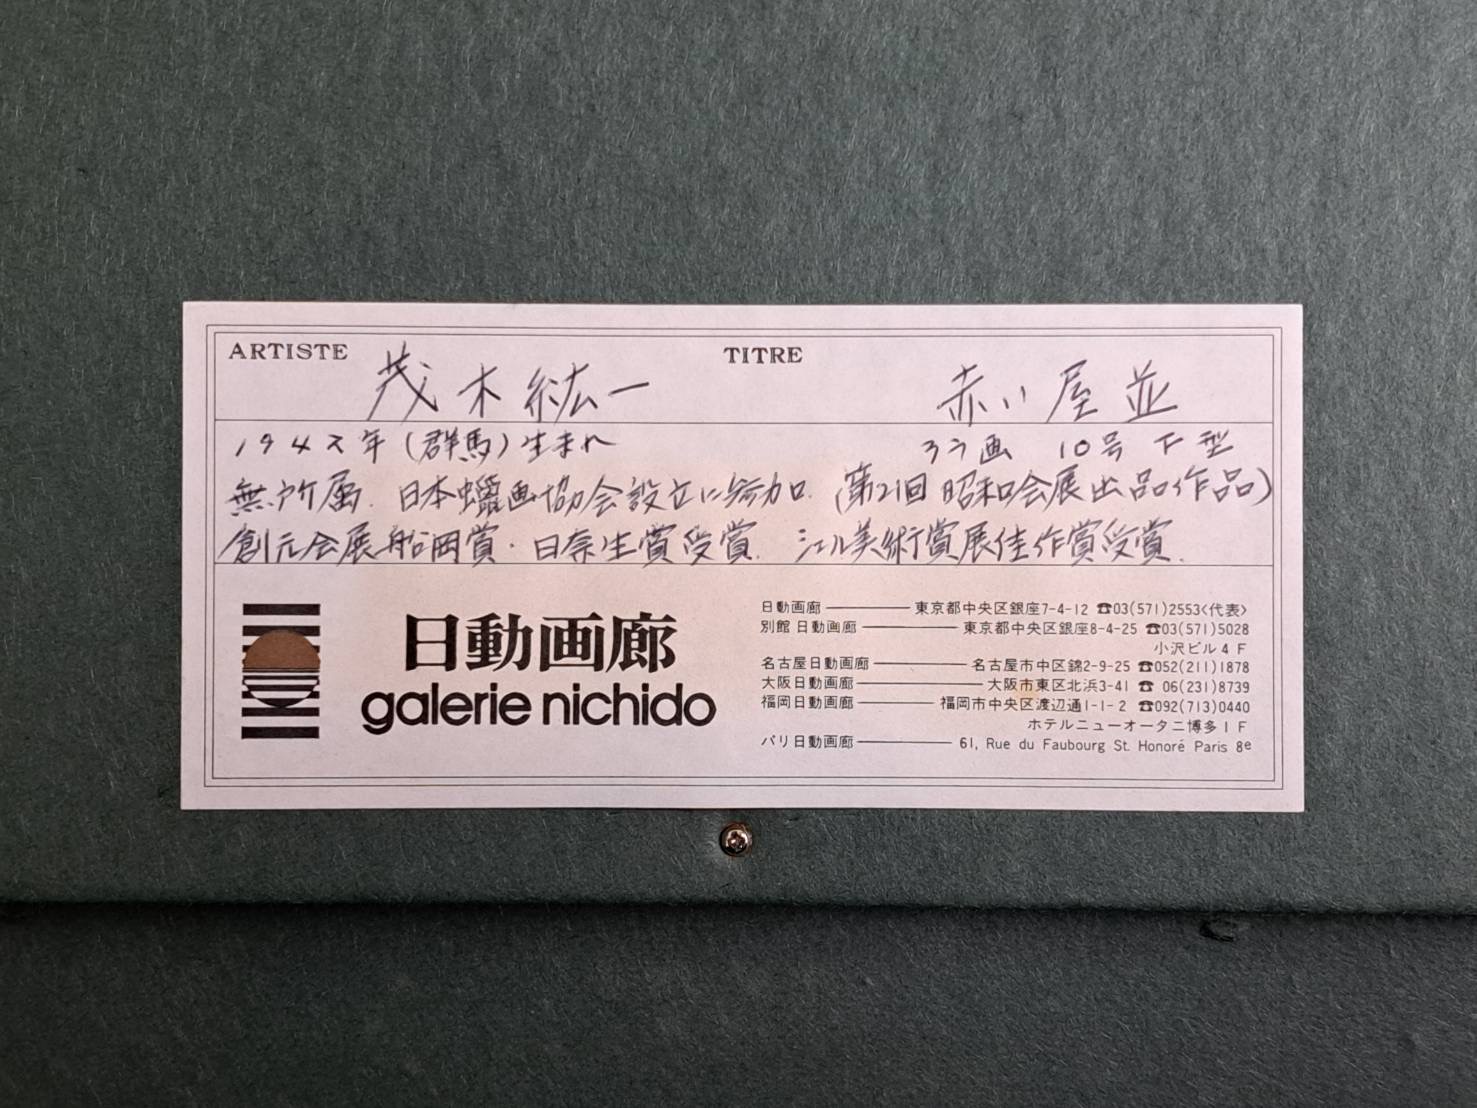 ARTISTE 茂木紘一 TITRE 赤い屋並
1942年(群馬)生まれ ろう画 10号 F型
無所属. 日本蠟画協会設立に参加. (第21回 昭和会展出品作品)
創元会展船岡賞・日奈生賞受賞. シェル美術賞展佳作賞受賞.
日動画廊
galerie nichido
日動画廊 東京都中央区銀座7-4-12 ☎03(571)2553<代表>
別館 日動画廊 東京都中央区銀座8-4-25 ☎03(571)5028
小沢ビル4F
名古屋日動画廊 名古屋市中区錦2-9-25 ☎052(211)1878
大阪日動画廊 大阪市東区北浜3-41 ☎ 06(231)8739
福岡日動画廊 福岡市中央区渡辺通1-1-2 ☎092(713)0440
ホテルニューオータニ博多1F
パリ日動画廊 61, Rue du Faubourg St. Honoré Paris 8e